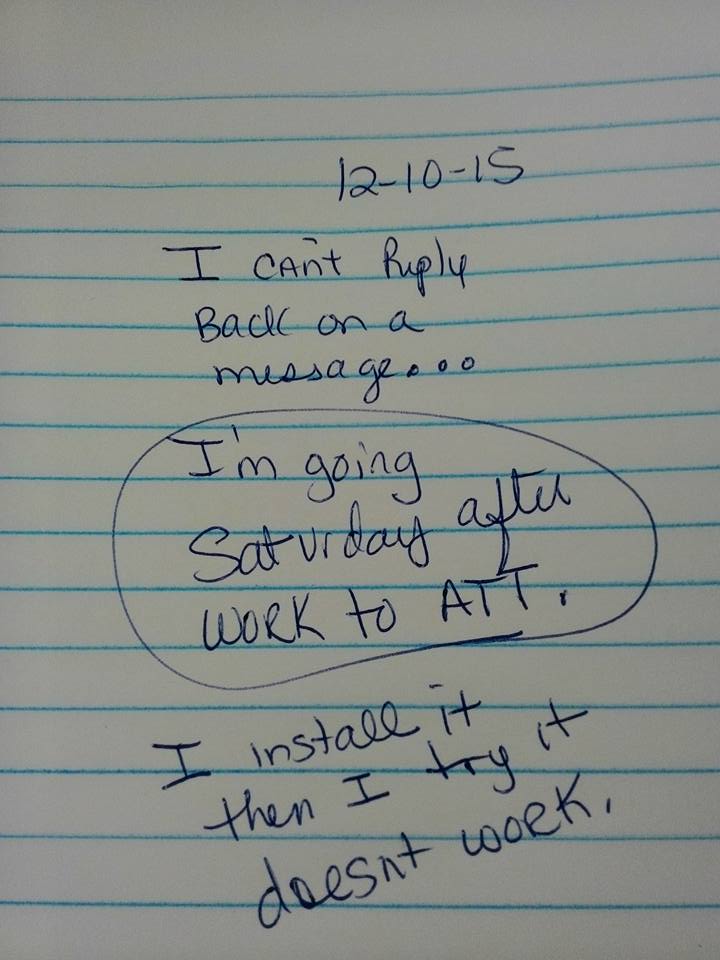 12-10-15
I CAN't Reply
Back on a
message...
I'm going
Saturday after
WORK to ATT.
I install it
then I try it
doesnt WORK.